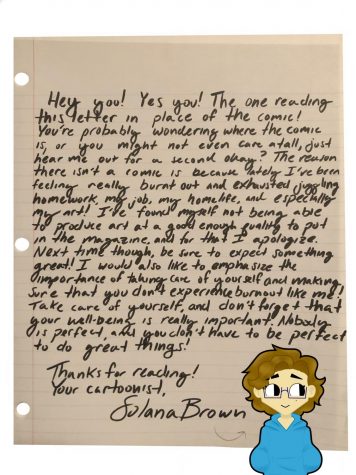 Hey you! Yes you! The one reading
this letter in place of the comic!
You're probably wondering where the comic
is, or you might not even care atall, just
hear me out for a second okay? The reason
there isn't a comic is because lately I've been
feeling really burnt out and exhausted juggling
homework, my job, my homelife, and especially
my art! I've found myself not being able
to produce art at a good enough quality to put
in the magazine, and for that I apologize.
Next time though, be sure to expect something
great! I would also like to emphasize the
importance of taking care of yourself and making
sure that you don't experience burnout like me!
Take care of yourself, and don't forget that
your well-being is really important. Nobody
is perfect, and you don't have to be perfect
to do great things!
Thanks for reading!
Your cartoonist,
Solana Brown